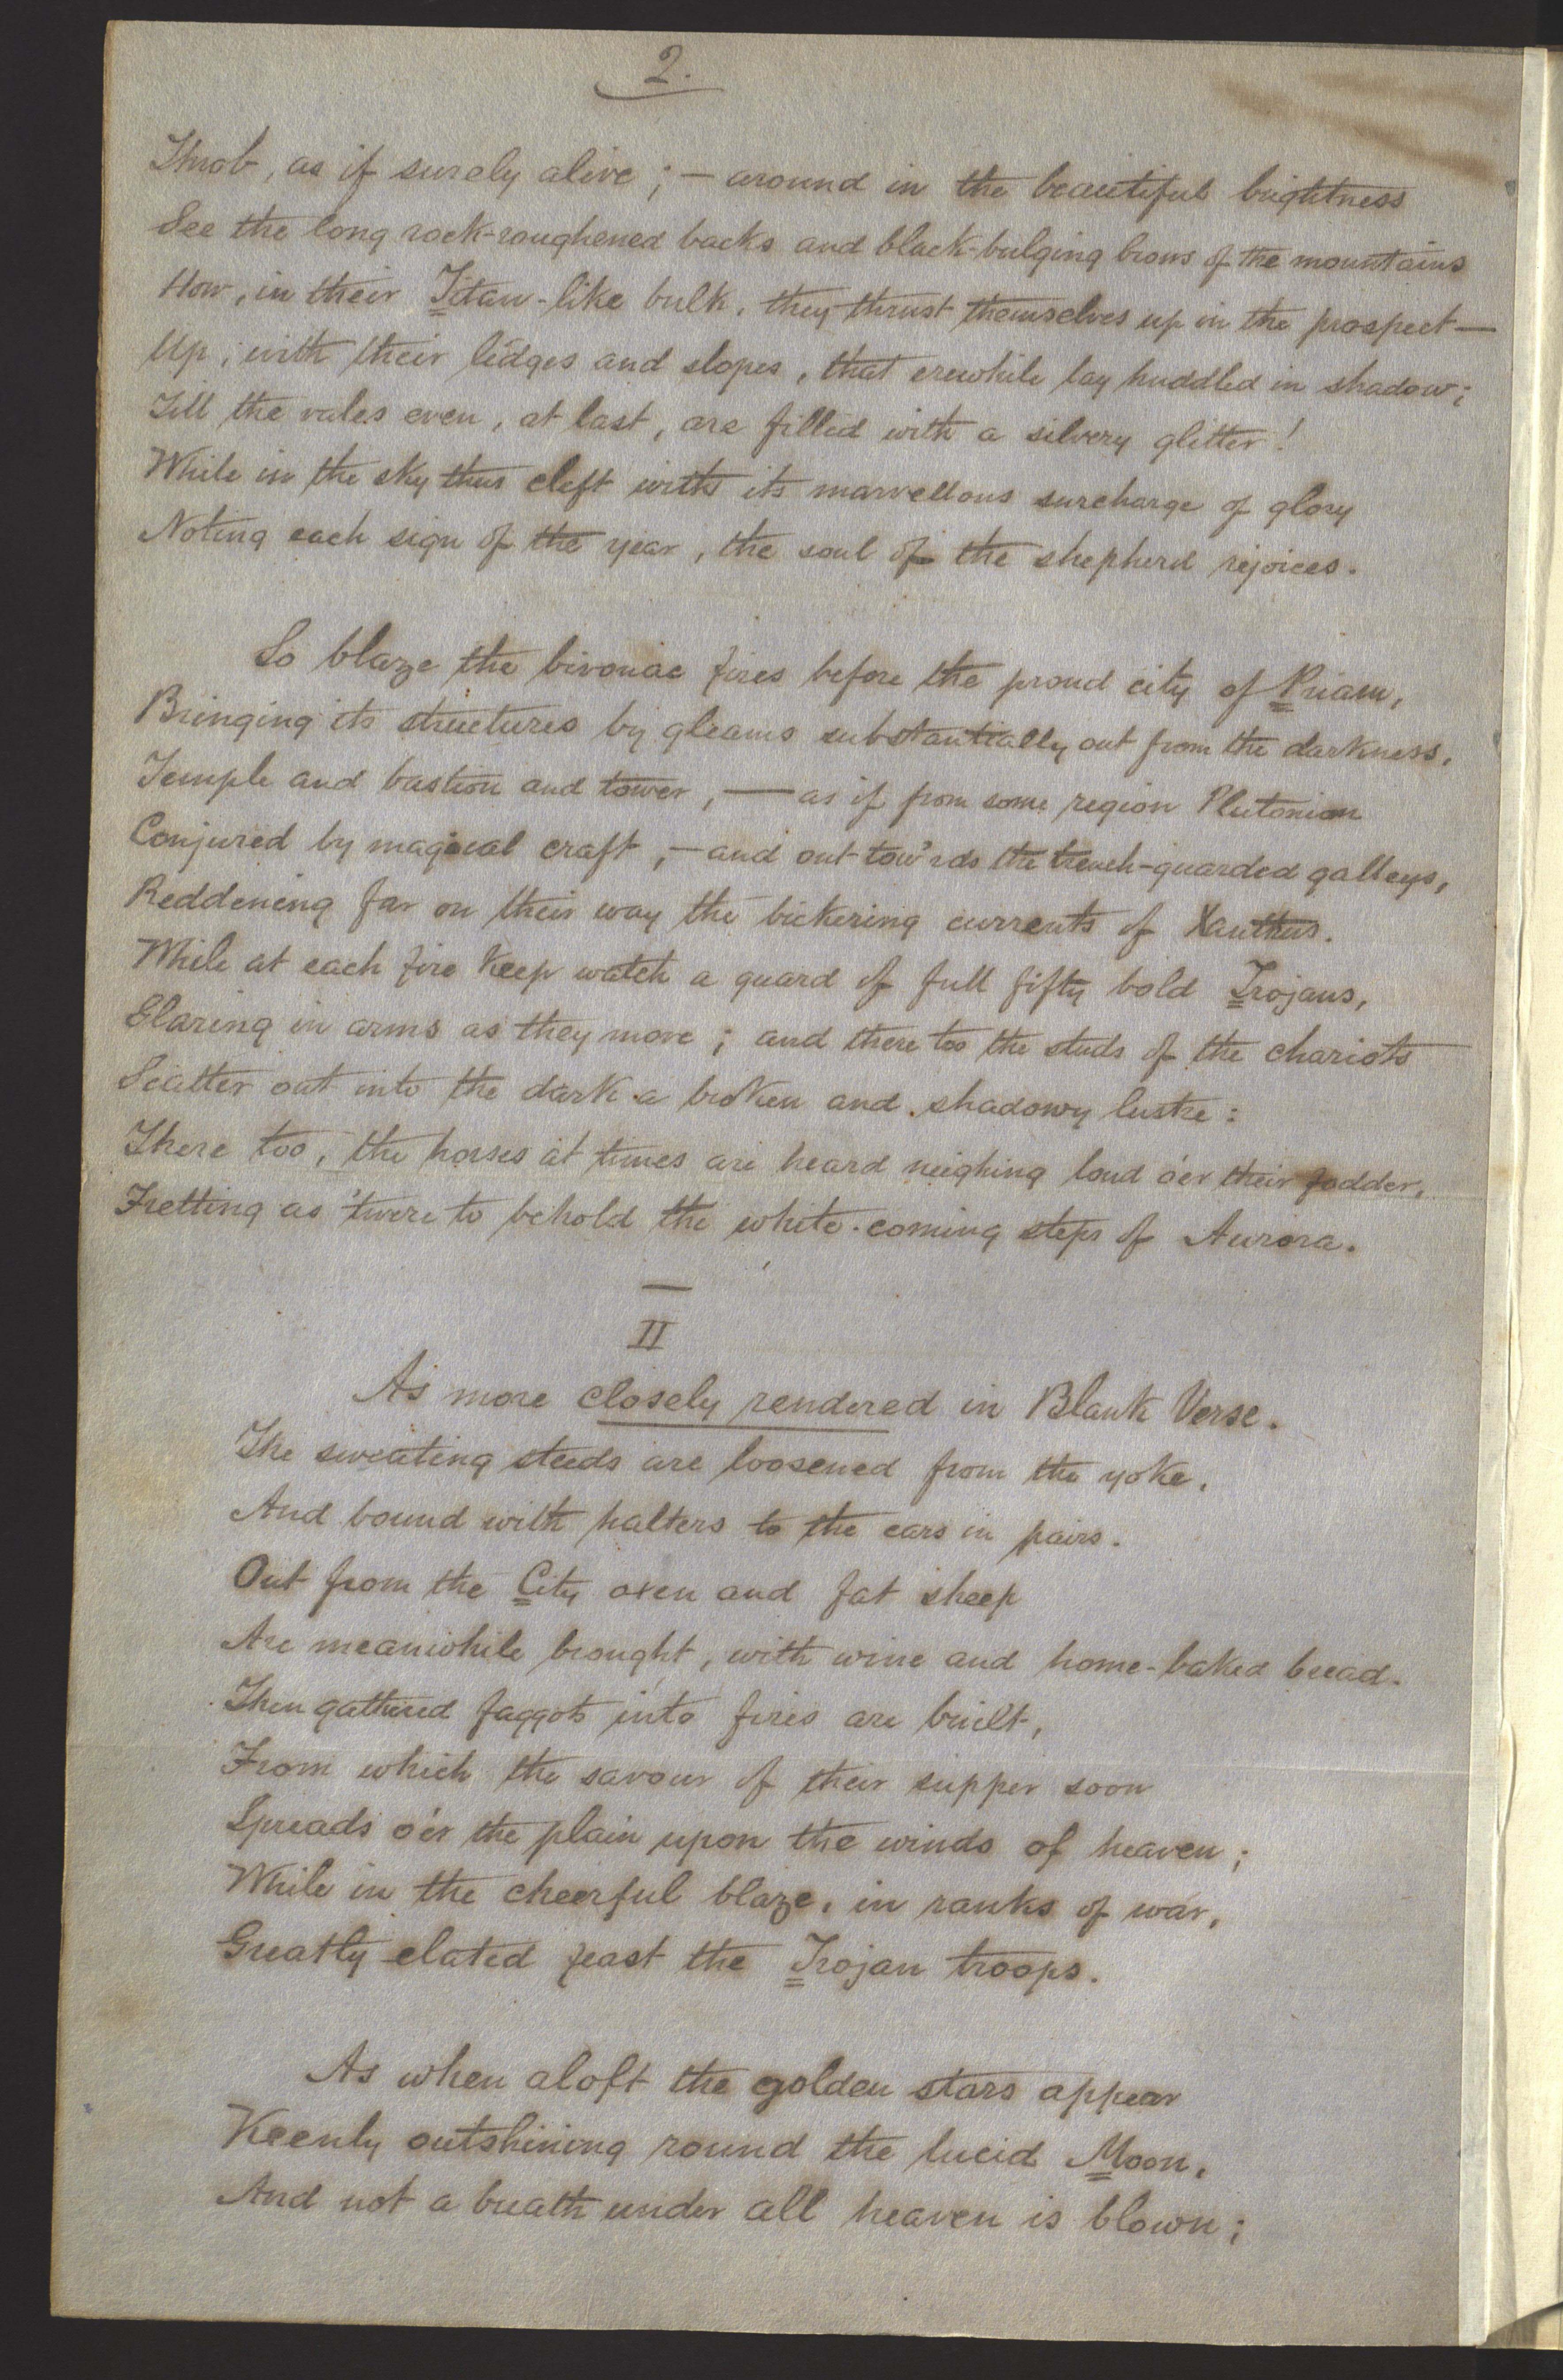 2.
Throb, as if surely alive; — around in the beautiful brightness
See the long rock-roughened backs and black-bulging brows of the mountains
How, in their Titan-like bulk, they thrust themselves up in the prospect —
Up, with their ledges and slopes, that erewhile lay huddled in shadow;
Till the vales even, at last, are filled with a silvery glitter!
While in the sky thus cleft with its marvellous surcharge of glory
Noting each sign of the year, the soul of the shepherd rejoices.
So blaze the bivouac fires before the proud city of Priam,
Bringing its structures by gleams substantially out from the darkness,
Temple and bastion and tower, — as if from some region Plutonian
Conjured by magical craft, — and out tow'rds the trench-guarded galleys,
Reddening far on their way the bickering currents of Xanthus.
While at each fire keep watch a guard of full fifty bold Trojans,
Glaring in arms as they move; and there too the studs of the chariots
Scatter out into the dark a broken and shadowy lustre:
There too, the horses at times are heard neighing loud o'er their fodder,
Fretting as 'twere to behold the white-coming steps of Aurora.
—
II
As more closely rendered in Blank Verse.
The sweating steeds are loosened from the yoke,
And bound with halters to the cars in pairs.
Out from the City oxen and fat sheep
Are meanwhile brought, with wine and home-baked bread.
Then gathered faggots into fires are built,
From which the savour of their supper soon
Spreads o'er the plain upon the winds of heaven;
While in the cheerful blaze, in ranks of war,
Greatly elated feast the Trojan troops.
As when aloft the golden stars appear
Keenly outshining round the lucid Moon,
And not a breath under all heaven is blown;